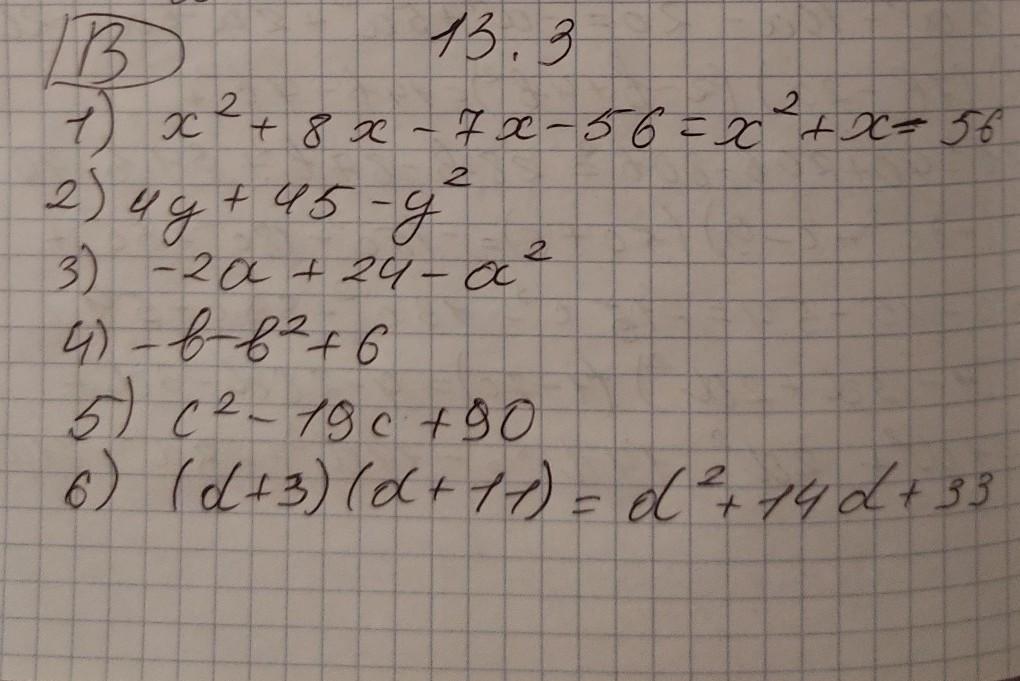 В 13.3
1) x² + 8x - 7x - 56 = x² + x - 56
2) 4y + 45 - y²
3) -2a + 24 - a²
4) -b - b² + 6
5) c² - 19c + 90
6) (d+3)(d+11) = d² + 14d + 33